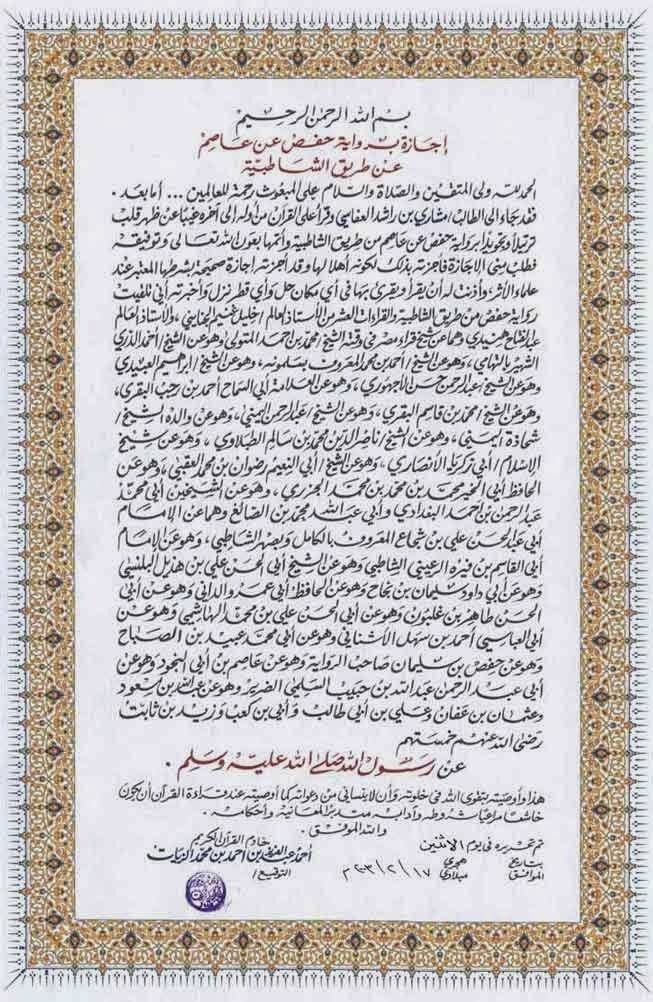 بسم الله الرحمن الرحيم
إجازة برواية حفص عن عاصم
عن طريق الشاطبية
الحمد لله ولي المتقين والصلاة والسلام على المبعوث رحمة للعالمين ... أما بعد .
فقد جاء إلي الطالب / مشاري بن راشد العفاسي وقرأ علي القرآن من أوله إلى آخره غيبا عن ظهر قلب
ترتيلا وتجويدا برواية حفص عن عاصم من طريق الشاطبية وأتمها بعون الله تعالى وتوفيقه
فطلب مني الاجازة فأجزته بذلك لكونه أهلا لها وقد أجزته إجازة صحيحة بشرطها المعتبر عند
علماء الأثر وأذنت له أن يقرأ ويقرئ بها في أي مكان حل وأي قطر نزل وأخبرته أني تلقيت
رواية حفص من طريق الشاطبية والقراءات العشر من الأستاذ العالم / خليل غنيم الجنايني ، والأستاذ العالم
عبد الفتاح هنيدي وهما عن شيخ قراء مصر في وقته الشيخ / محمد بن أحمد المتولي وهو عن الشيخ / أحمد الدري
الشهير بالتهامي ، وهو عن الشيخ / أحمد بن محمد المعروف بسلمونه ، وهو عن الشيخ / إبراهيم العبيدي
وهو عن الشيخ / عبد الرحمن حسن الأجهوري ، وهو عن العلامة / أبي السماح أحمد بن رجب البقري ،
وهو عن الشيخ / محمد بن قاسم البقري ، وهو عن الشيخ / عبد الرحمن اليمني ، وهو عن والده الشيخ /
شحاذة اليمني ، وهو عن الشيخ / ناصر الدين محمد بن سالم الطبلاوي ، وهو عن شيخ
الإسلام / أبي زكريا الأنصاري ، وهو عن الشيخ / أبي النعيم رضوان بن محمد العقبي ، وهو عن
الحافظ أبي الخير محمد بن محمد بن محمد الجزري ، وهو عن الشيخين أبي محمد
عبد الرحمن بن أحمد البغدادي وأبي عبد الله محمد بن الصائغ وهما عن الإمام
أبي عبد الحسن علي بن شجاع المعروف بالكامل وبصهر الشاطبي ، وهو عن الإمام
أبي القاسم بن فيره الرعيني الشاطبي وهو عن الشيخ أبي الحسن علي بن هذيل البلنسي
وهو عن أبي داود سليمان بن نجاح وهو عن الحافظ أبي عمرو الداني وهو عن أبي
الحسن طاهر بن غلبون وهو عن أبي الحسن علي بن محمد الهاشمي وهو عن
أبي العباسي أحمد بن سهل الأشناني وهو عن أبي محمد عبيد بن الصباح
وهو عن حفص بن سليمان صاحب الرواية وهو عن عاصم بن أبي النجود وهو عن
أبي عبد الرحمن عبد الله بن حبيب السلمي الضرير وهو عن عبد الله بن مسعود
وعثمان بن عفان وعلي بن أبي طالب وأبي بن كعب وزيد بن ثابت
رضي الله عنهم خمستهم
عن رسول الله صلى الله عليه وسلم .
هذا وأوصيته بتقوى الله في خلوته وأن لا ينساني من دعواته كما أوصيته عند قراءة القرآن أن يكون
خاشعا مراعيا شروطه وآدابه متدبرا لمعانيه وأحكامه .
والله الموفق .
تم تحريره في يوم الاثنين
بتاريخ هجري
الموافق ١٧ / ٢ / ٢٠٠٣ م ميلادي
خادم القرآن الكريم
أحمد عبد العزيز بن أحمد بن محمد الزيات
التوقيع /